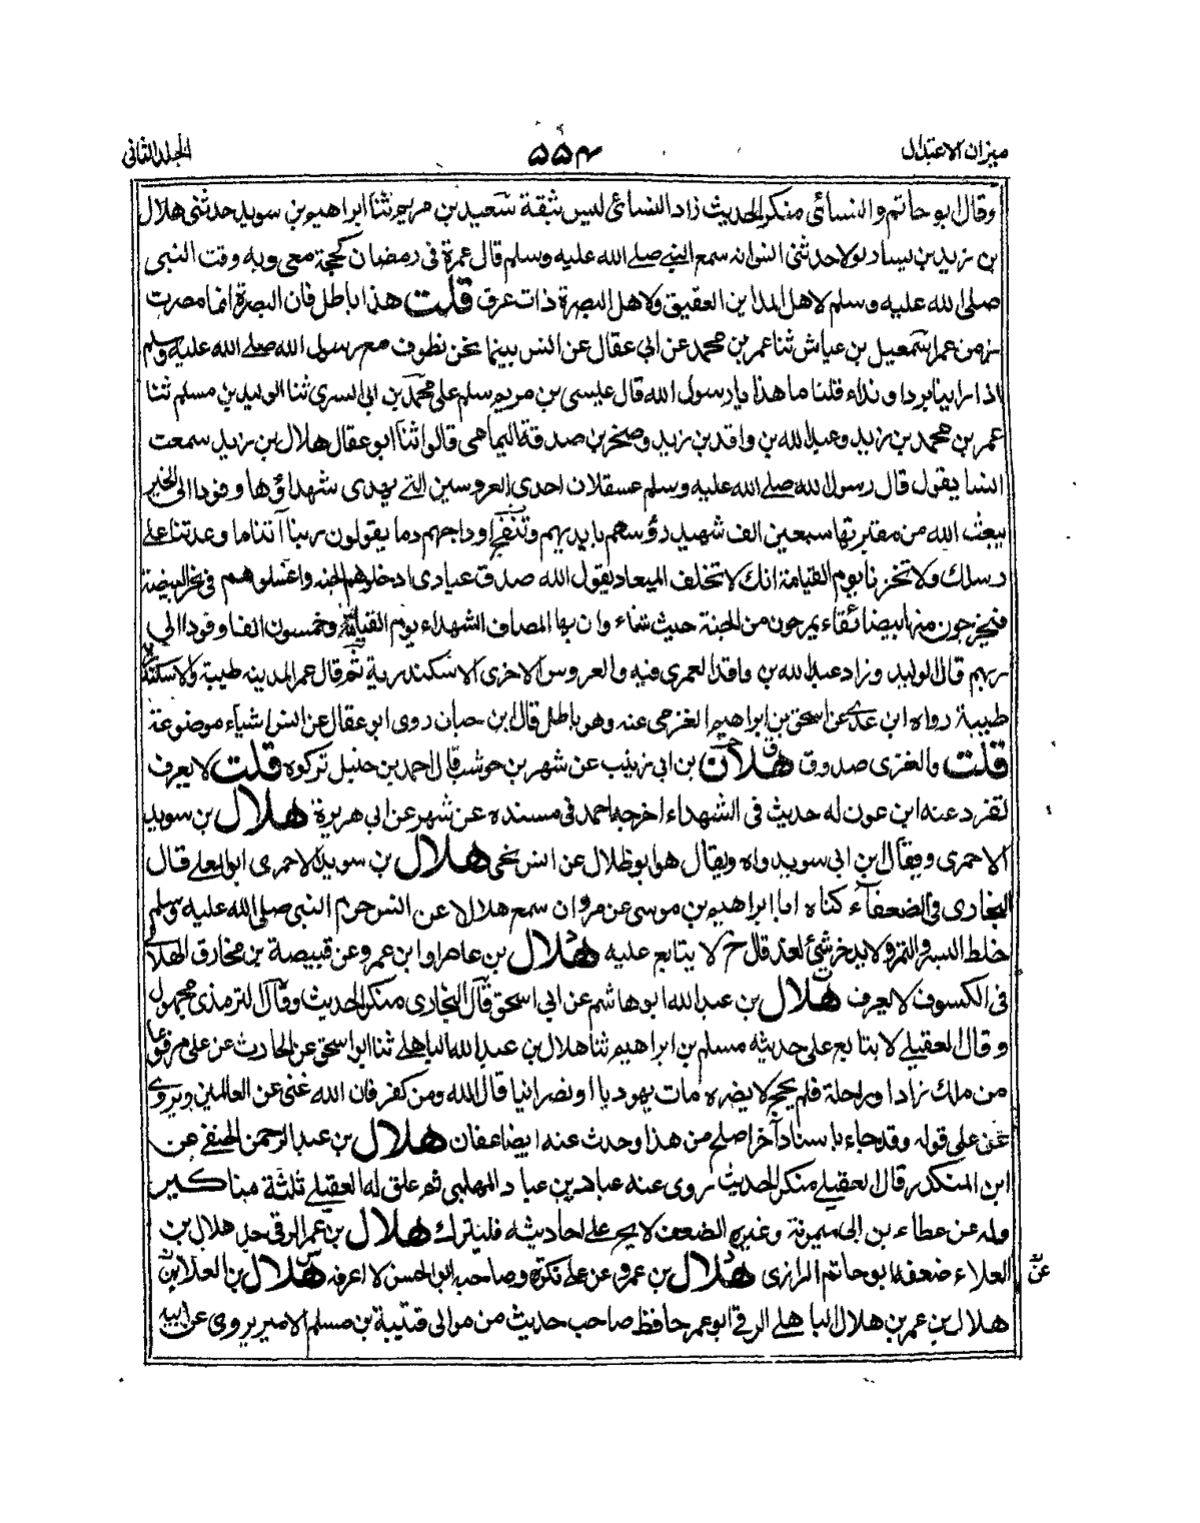 ميزان الاعتدال
۵۵۴
الجلد الثانى
وقال ابو حاتم والنسائى منكر الحديث زاد النسائى ليس بثقة سعيد بن مريم ثنا ابراهيم بن سويد حدثنى هلال
بن زيد بن يسار بولا حدثنى انس انه سمع النبى صلى الله عليه وسلم قال عمرة فى رمضان كحجة معى وبه وقت النبى
صلى الله عليه وسلم لاهل المداين العقيق ولاهل البصرة ذات عرق قلت هذا باطل فان البصرة انما مصرت
زمن عمر اسمعيل بن عياش ثنا عمر بن محمد عن ابى عقال عن انس بينما نحن نطوف مع رسول الله صلى الله عليه وسلم
اذ راينا بردا ونداء قلنا ما هذا يا رسول الله قال عيسى بن مريم سلم على محمد بن ابى السرى ثنا الوليد بن مسلم ثنا
عمر بن محمد بن زيد وعبد الله بن واقد بن زيد وصخر بن صدقة اليمامى قالوا ثنا ابو عقال هلال بن زيد سمعت
انسا يقول قال رسول الله صلى الله عليه وسلم عسقلان احدى العروسين التى يهدى شهداؤها وفودا الى الخير
يبعث الله من مقبرتها سبعين الف شهيد رؤسهم بايديهم وتنفخ اوداجهم دما يقولون ربنا آتنا ما وعدتنا على
رسلك ولا تخزنا يوم القيامة انك لا تخلف الميعاد يقول الله صدق عبادى ادخلوهم الجنة واغسلوهم فى نهر البيضة
فيخرجون منها بيضا نقاء يمرحون من الجنة حيث شاء وان بها المصاف الشهداء يوم القيامة وخمسون الفا وفودا الى
ربهم قال الوليد وزاد عبد الله بن واقد العمرى فيه والعروس الاخرى الاسكندرية ثم قال عمر المدينه طيبة والاسكندرية
طيبة رواه ابن عدى عن اسحق بن ابراهيم الغزى عنه وهو باطل قال ابن حبان روى ابو عقال عن انس اشياء موضوعة
قلت والغزى صدوق هلال بن ابى زينب عن شهر بن حوشب قال احمد بن حنبل تركوه قلت لا يعرف
تفرد عنه ابن عون له حديث فى الشهداء اخرجه احمد فى مسنده عن شهر عن ابى هريرة هلال بن سويد
الاحمرى ويقال ابن ابى سويد واه ويقال هو ابو ظلال عن انس نحى هلال بن سويد الاحمرى ابو المعلى قال
البخارى فى الضعفاء كناه انا ابراهيم بن موسى عن مروان سمع هلالا عن انس حرم النبى صلى الله عليه وسلم
خلط البسر والتمر ولا يدخر شئ لغد قال خ لا يتابع عليه هلال بن عامر او ابن عمرو عن قبيصة بن مخارق الهلالى
فى الكسوف لا يعرف هلال بن عبد الله ابو هاشم عن ابى اسحق قال البخارى منكر الحديث وقال الترمذى مجهول
وقال العقيلى لا يتابع على حديثه مسلم بن ابراهيم ثنا هلال بن عبد الله الباهلى ثنا ابو اسحق عن الحارث عن على مرفوعا
من ملك زادا وراحلة فلم يحج لا يضره مات يهوديا او نصرانيا قال الله ومن كفر فان الله غنى عن العالمين ويروى
عن على قوله وقد جاء باسناد آخر اصلح من هذا وحدث عنه ايضا عفان هلال بن عبد الرحمن الحنفى عن
ابن المنكدر قال العقيلى منكر الحديث روى عنه عباد بن عباد المهلبى ثم علق له العقيلى ثلثة مناكير
وله عن عطاء بن ابى ميمونة وغيره الضعف لايح على احاديثه فليترك هلال بن عمر الرقى جد هلال بن
العلاء ضعفه ابو حاتم الرازى هلال بن عمرو عن على نكرة وصاحبه ابو الحسن لا اعرفه هلال بن العلا بن
عن
هلال بن عمر بن هلال الباهلى الرقى ابو عمر حافظ صاحب حديث من موالى قتيبة بن مسلم الامير يروى عن ابيه